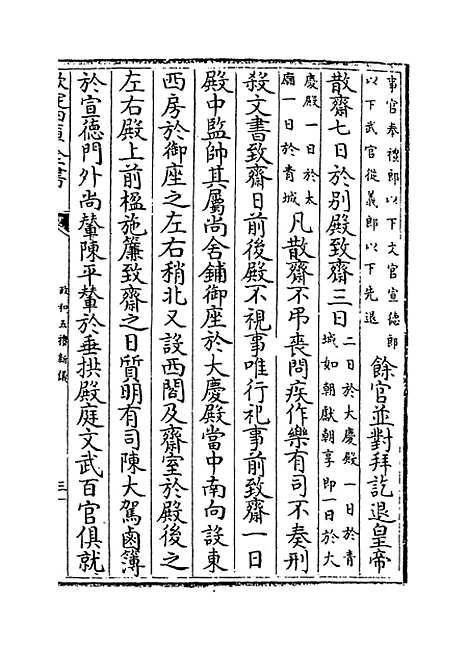 事官奉禮郎以下文官宣德郎
以下武官從義郎以下先退
餘官並對拜訖退皇帝
散齋七日於别殿致齋三日
二日於大慶殿一日於青
城如朝獻朝享即一日於大
慶殿一日於太
廟一日於青城
凡散齋不弔喪問疾作樂有司不奏刑
殺文書致齋日前後殿不視事唯行祀事前致齋一日
殿中監帥其屬尚舍鋪御座於大慶殿當中南向設東
西房於御座之左右稍北又設西閤及齋室於殿後之
左右殿上前楹施簾致齋之日質明有司陳大駕鹵簿
於宣德門外尚輦陳平輦於垂拱殿庭文武百官俱就
欽定四庫全書
政和五禮新儀
三